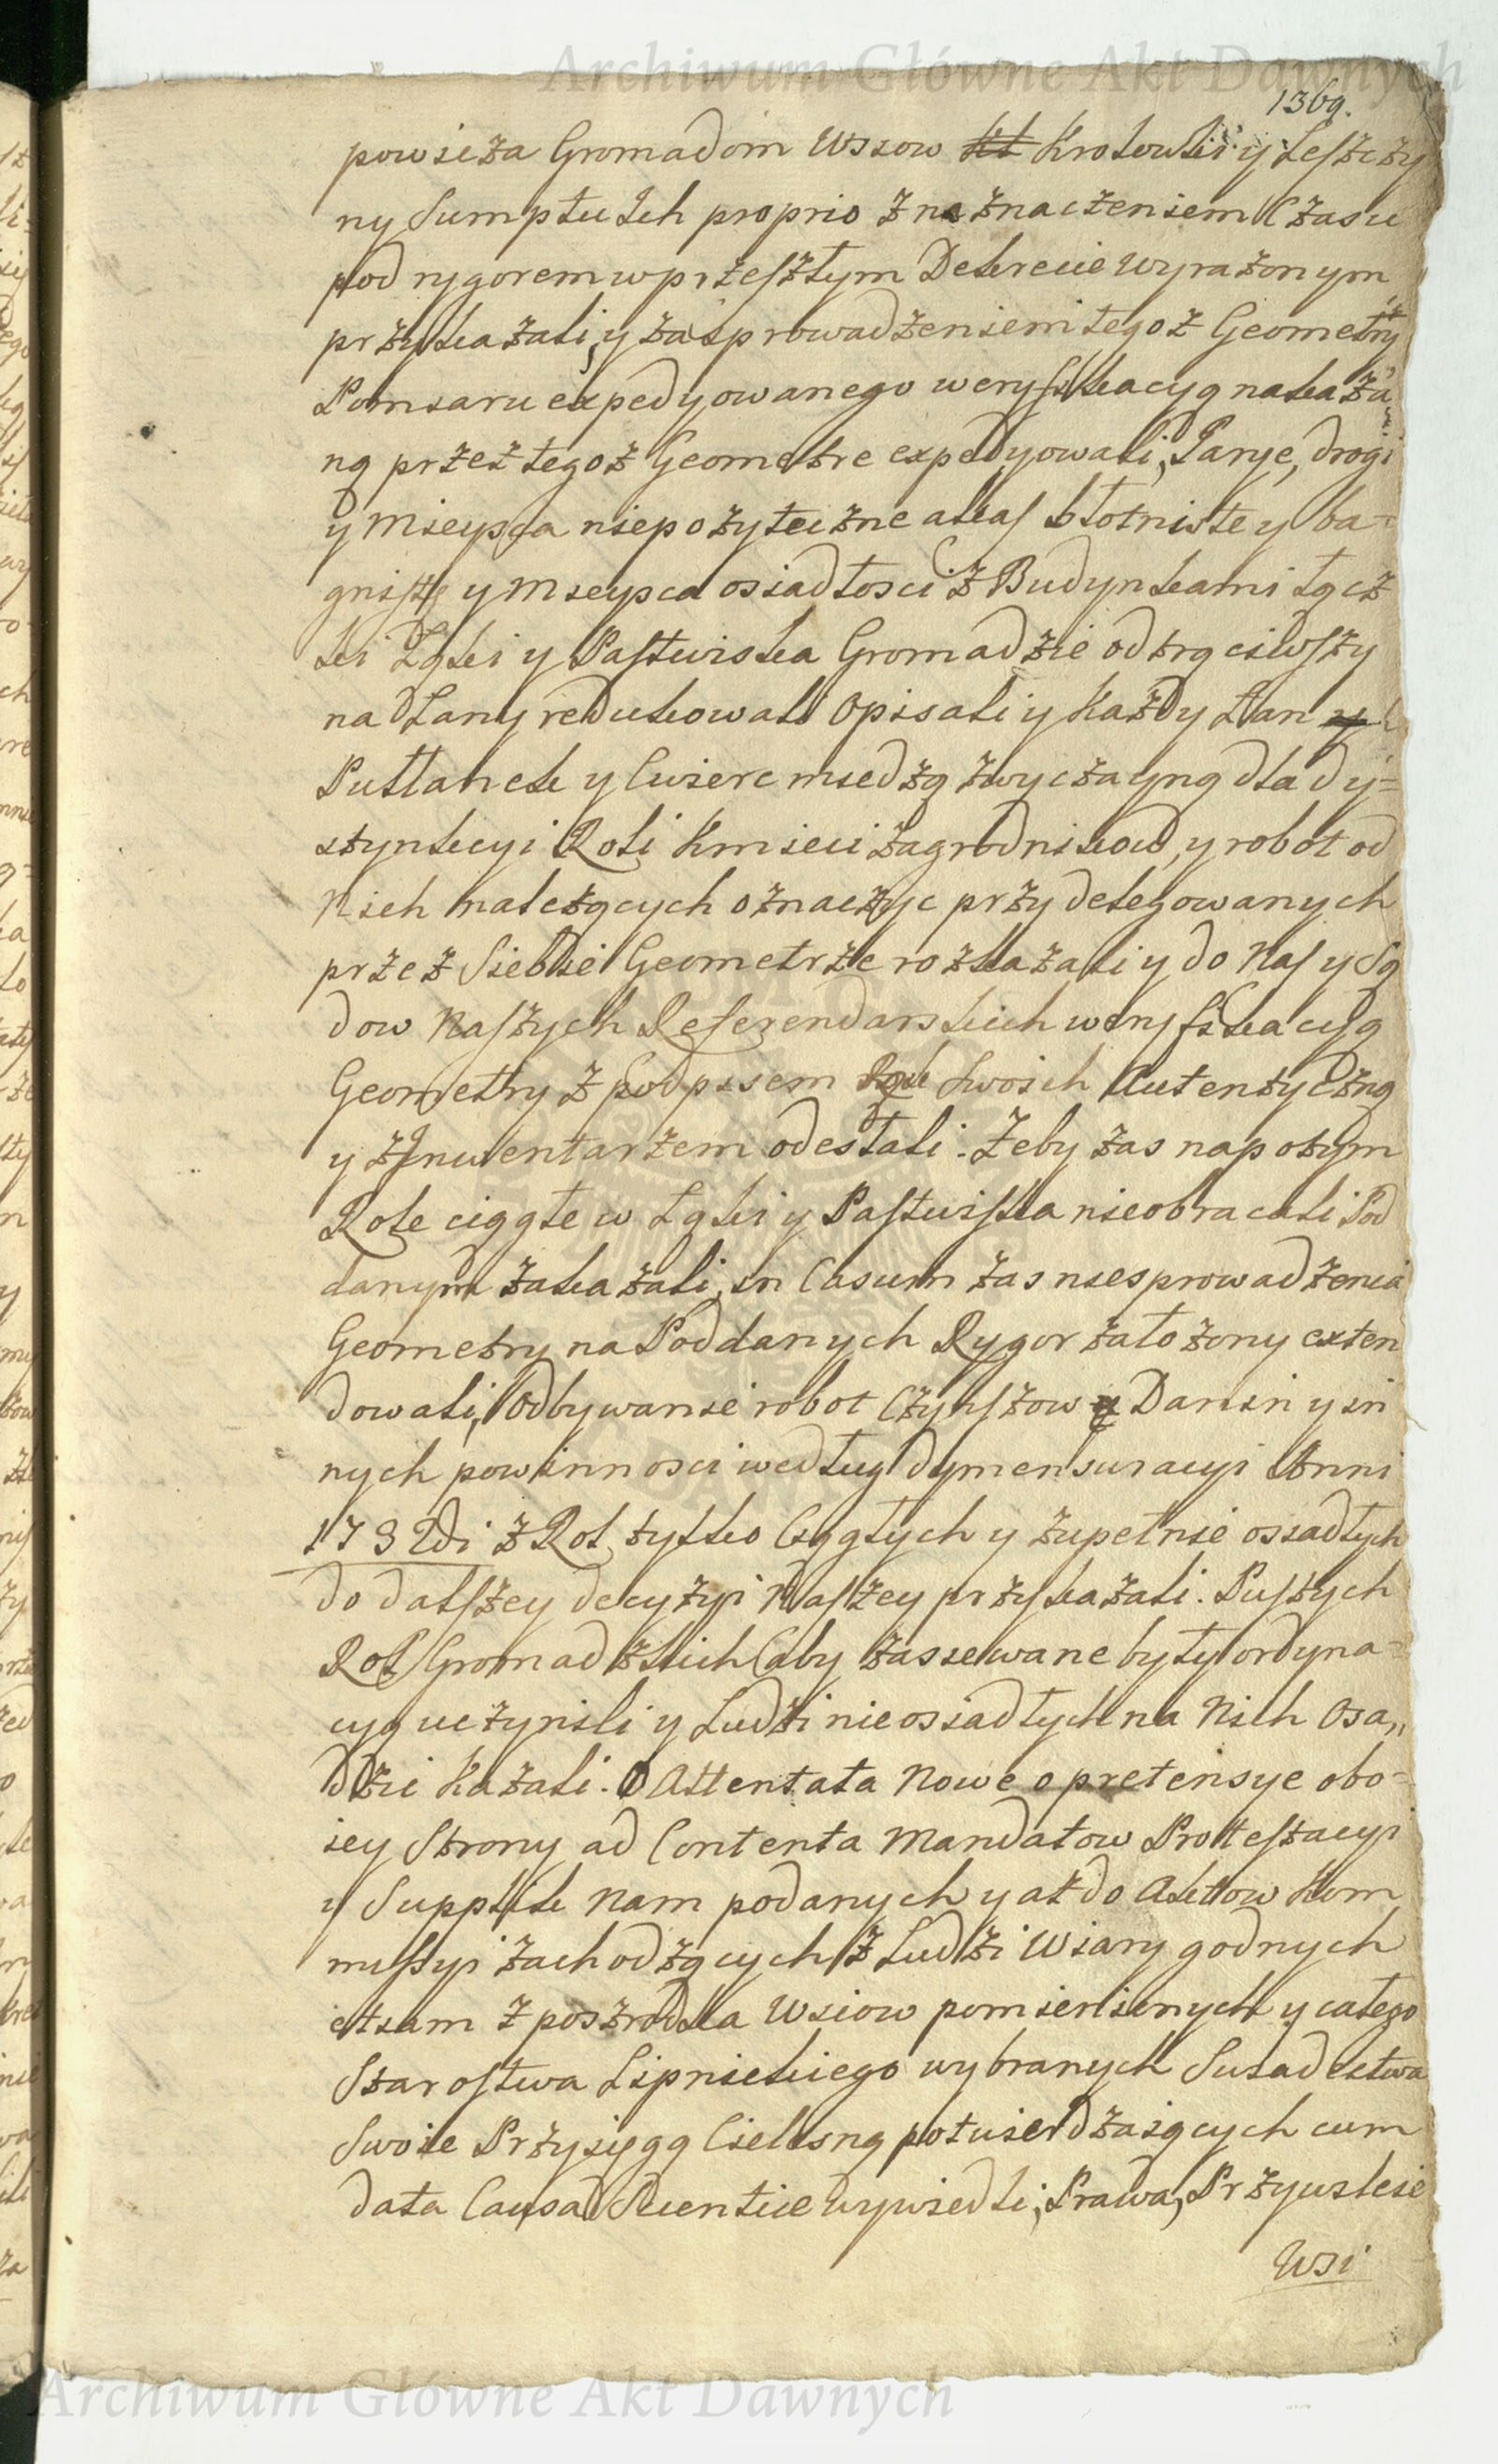 Archiwum Główne Akt Dawnych
1369.
powieza Gromadom Wsiow Kt Krotowki y Leszczy
ny Sumptu Ich proprio z na znaczeniem Czasu
pod rygorem w przeszłym Dekrecie wyrażonym
przykazali, y za sprowadzeniem tegoż Geometry
Pomiaru expedyowanego weryfikacyą nakaza
ną przez tegoż Geometre expedyowali, Parye, drogi
y Mieysca niepożyteczne akas błotniste y ba=
gniste y Mieysca osiadłosci z Budynkami łącz
ki Łąki y Pastwiska Gromadzie odtrąciwszy
na Łany redukowali Opisali y Każdy Łan y
Pułłanek y Cwierc miedzą zwyczayną dla dy=
stynkcyi Roli Kmieci Zagrodnikow, y robot od
Nich należących oznaczyc przy delegowanych
przez Siebie Geometrze rozkazali y do Nas y Są
dow Naszych Referendarskich weryfikacyą
Geometry z podpisem Rąk Swoich Autentyczną
y z Inwentarzem odesłali. Żeby zas napotym
Role ciągłe w Łąki y Pastwiska nieobracali Pod
danym zakazali, in Casum zas niesprowadzenia
Geometry na Poddanych Rygor założony exten
dowali, Odbywanie robot Czynszow y Danin y in
nych powinnosci według dymensuracyi Anni
1732di z Rol tylko Ciągłych y zupełnie osiadłych
do dalszey decyzyi Naszey przykazali. Pustych
Rol Gromadzkich aby zasiewane były ordyna=
cyą uczynili y Ludzi nieosiadłych na Nich Osa,,
dzic Kazali. O Attentata Nowe o pretensye obo=
iey Strony ad Contenta Mandatow Protestacyi
y Supplik Nam podanych y aż do Aktow Kom
missyi zachodzących z Ludzi Wiary godnych
etiam z poszrodka Wsiow pomienionych y całego
Starostwa Lipnickiego wybranych Swiadectwa
Swoie Przysięgą Cielesną potwierdzaiących cum
data Causa Scientiae wywiedli, Prawa, Przywileie
Wsi
Archiwum Główne Akt Dawnych